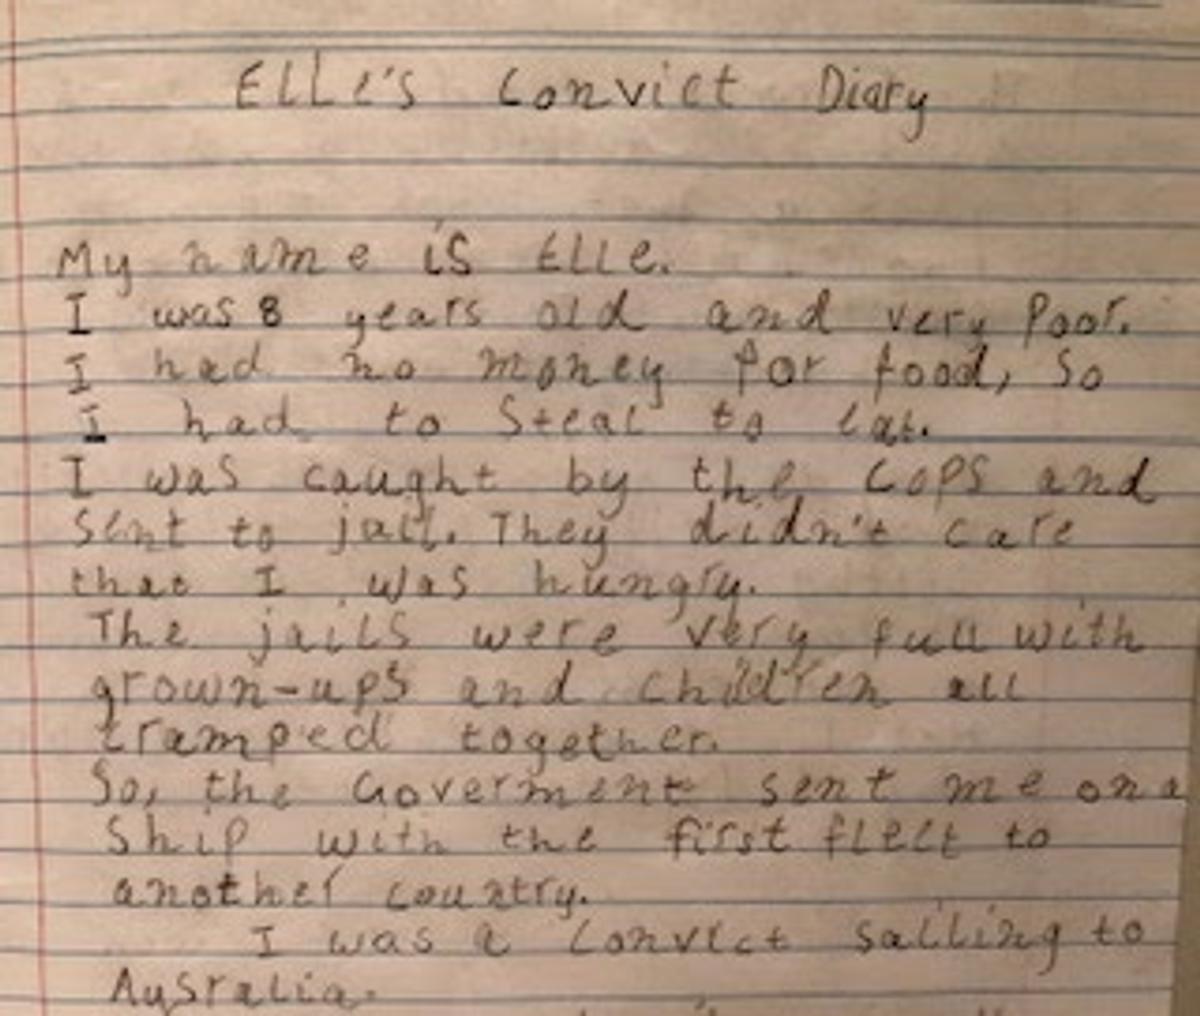 Elle's Convict Diary
My name is Elle.
I was 8 years old and very Poor.
I had no money for food, So
I had to Steal to eat.
I was caught by the cops and
sent to jail. They didn't care
that I was hungry.
The jails were very full with
grown-ups and children all
tramped together.
So, the Goverment sent me on a
Ship with the first fleet to
another country.
I was a convict sailing to
Australia.